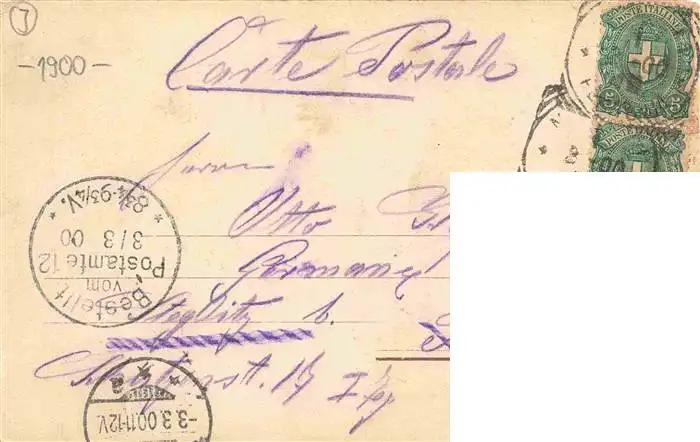 7
-1900-
Carte Postale
POSTE ITALIANE
5 5
POSTE ITALIANE
Herrn
Otto
Germania
Steglitz b.
Bestellt
vom
Postamte 12
3/3 00
* 8¾-9¾V. *
-3.3.00.11-12V.